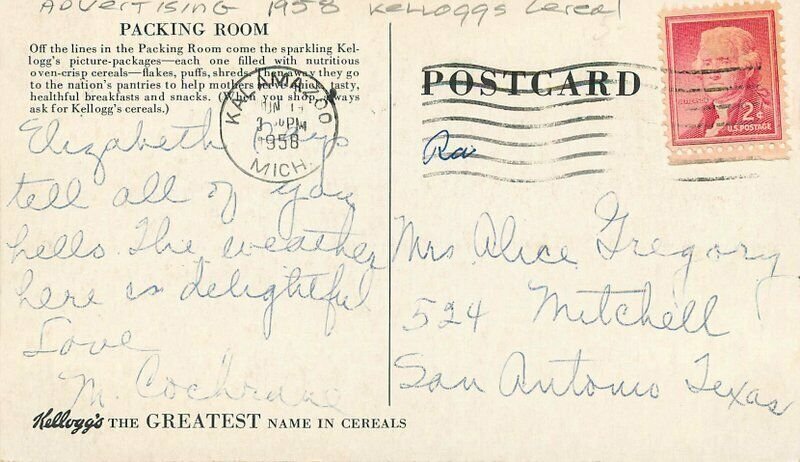 ADVERTISING 1958 KELLOGGS Cereal
PACKING ROOM
Off the lines in the Packing Room come the sparkling Kel-
logg's picture-packages—each one filled with nutritious
oven-crisp cereals—flakes, puffs, shreds. Then away they go
to the nation's pantries to help mothers serve quick, tasty,
healthful breakfasts and snacks. (When you shop, always
ask for Kellogg's cereals.)
Elizabeth says
tell all of you
hello. The weather
here is delightful
Love
M. Cochrane
Kellogg's THE GREATEST NAME IN CEREALS
KALAMAZOO
PM
1958
MICH.
POSTCARD
2¢
U.S. POSTAGE
Mrs Alice Gregory
524 Mitchell
San Antonio Texas